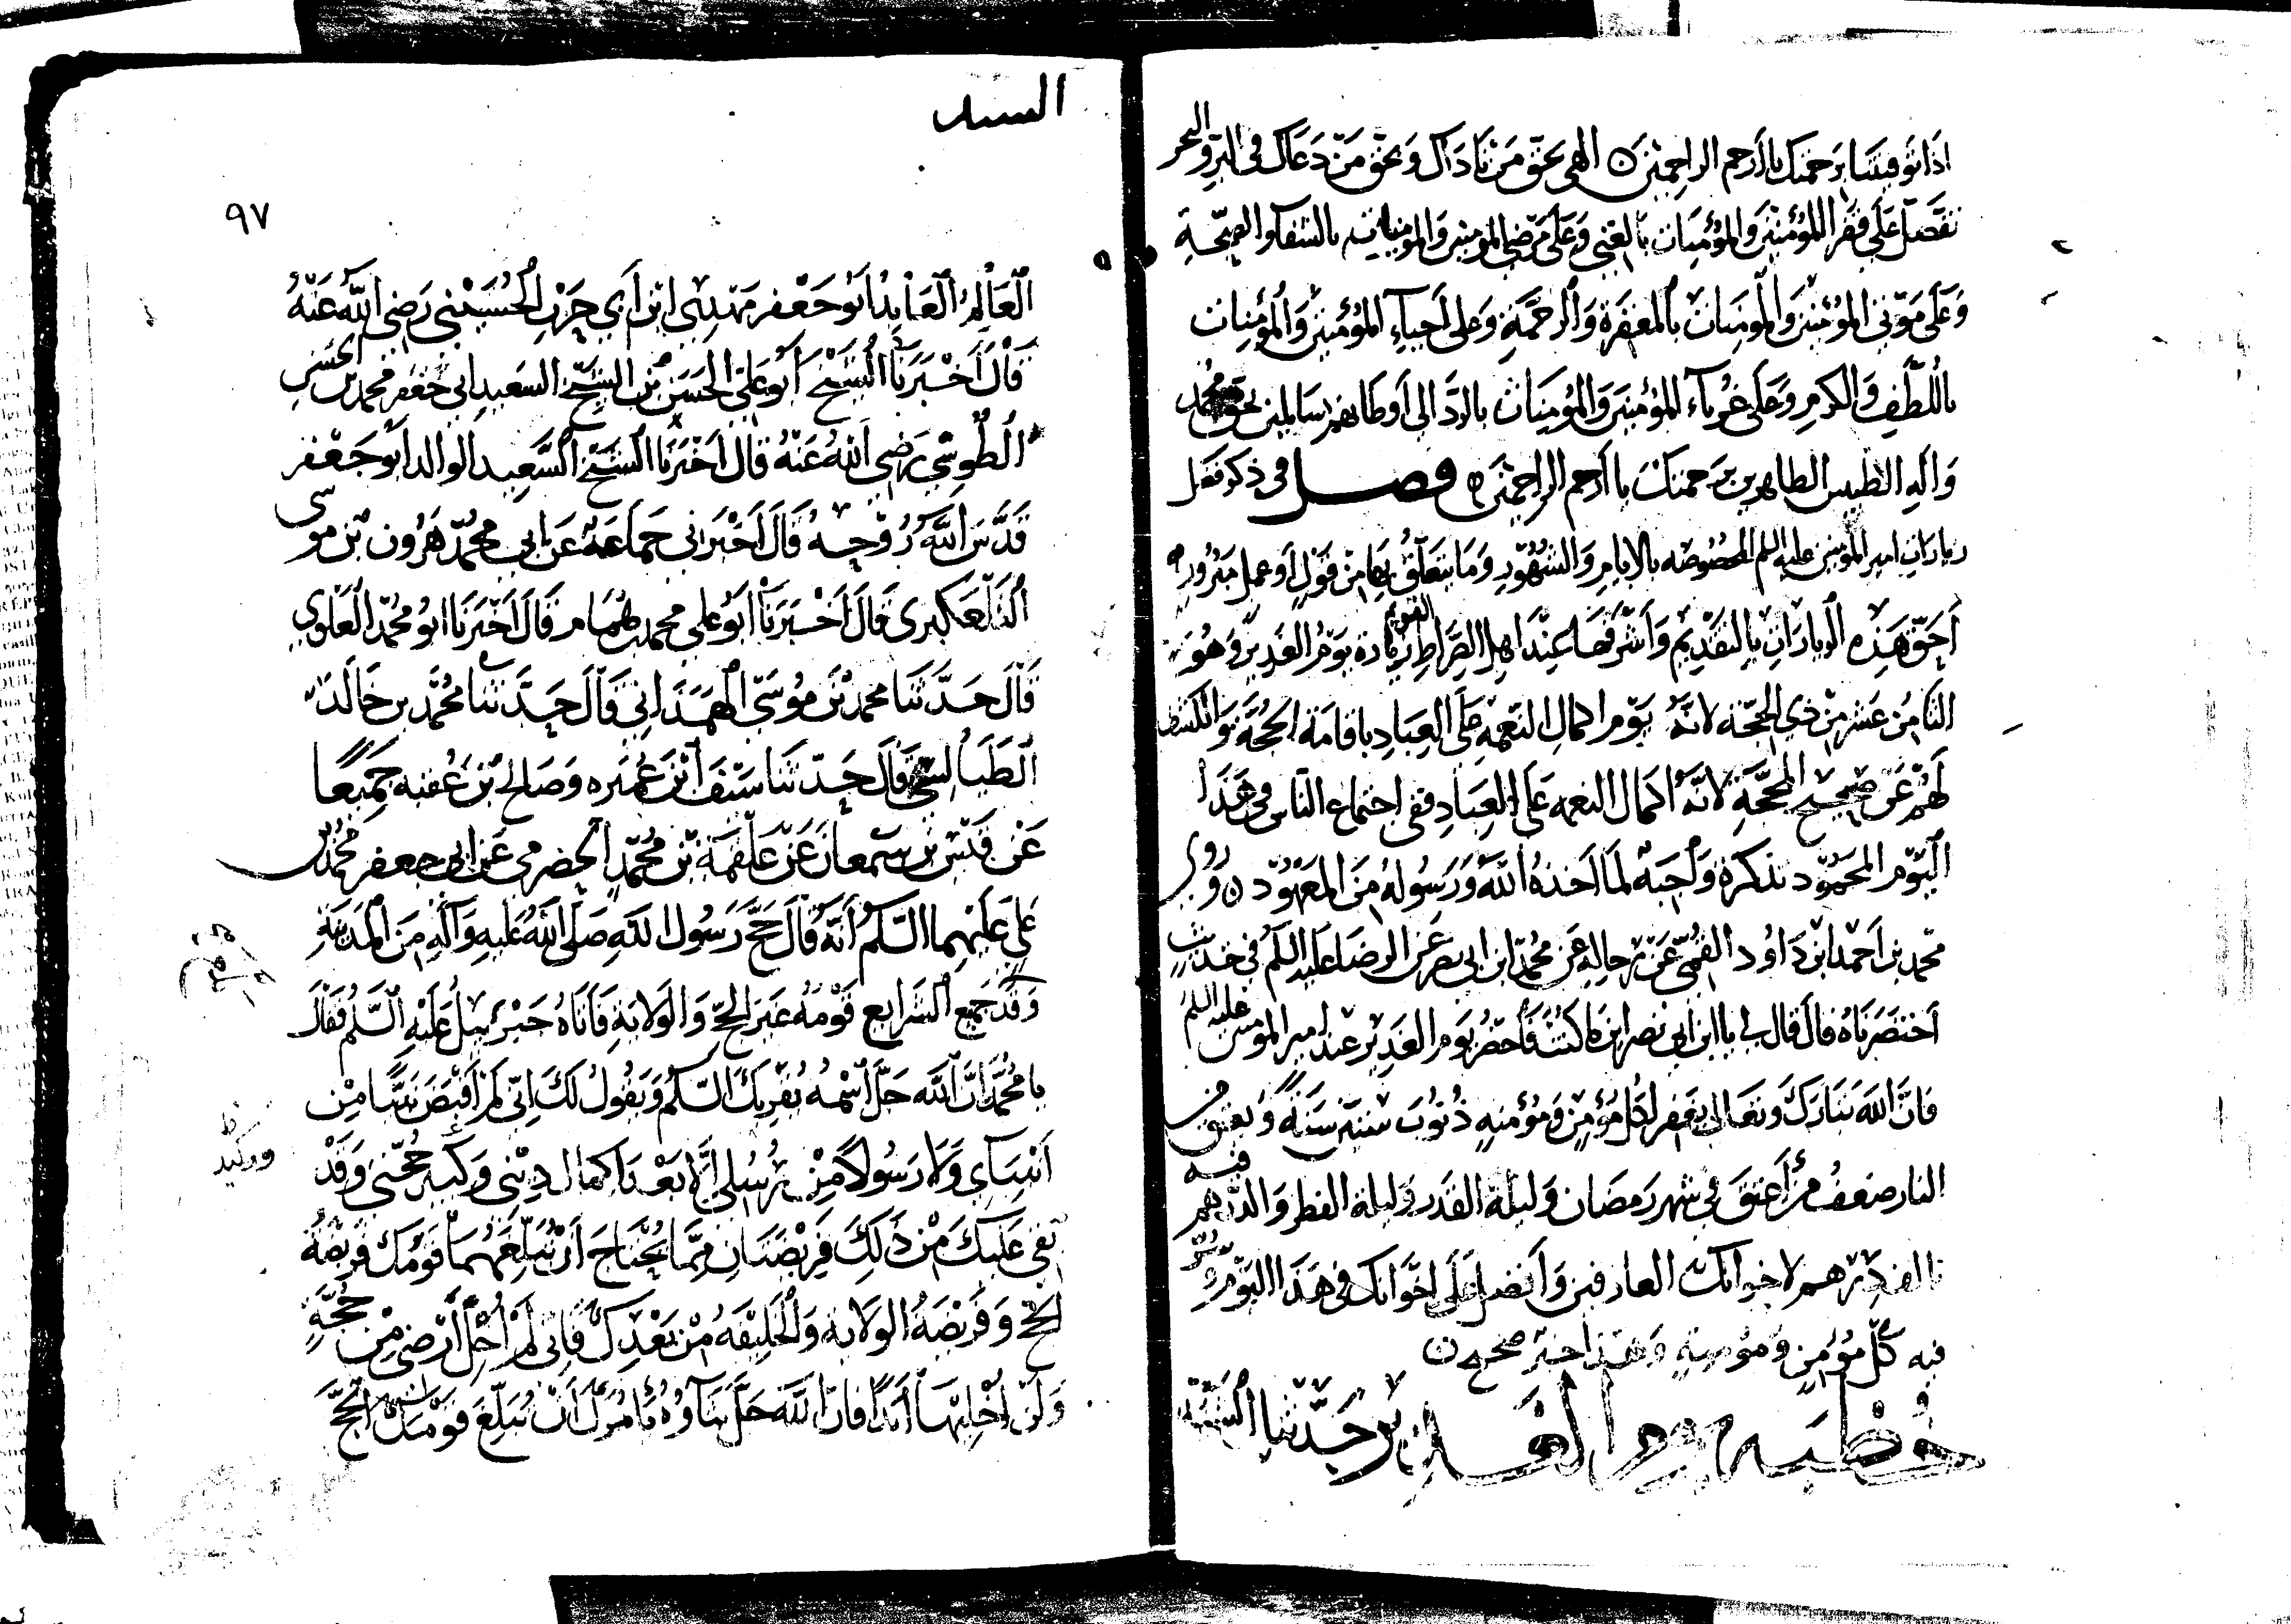 اذا توفيتنا برحمتك يا ارحم الراحمين ۞ الهي بحق من ناداك وبحق من دعاك في البر والبحر
تفضل على فقرا المؤمنين والمؤمنات بالغنى وعلى مرضى المومنين والمومنات بالشفآ والصحة
وعلى موتى المؤمنين والمومنات بالمغفرة والرحمة وعلى احياء المؤمنين والمؤمنات
باللطف والكرم وعلى غرباء المؤمنين والمؤمنات بالرد الى اوطانهم سالمين بحق محمد
واله الطيبين الطاهرين برحمتك يا ارحم الراحمين ۞ فصل في ذكر فضل
زيارات امير المؤمنين عليه السلم المخصوصه بالايام والشهور وما يتعلق بها من قول او عمل مبرور
احق هذه الزيارات بالتقديم واشرفها عند اهل الصراط القويم زيارة يوم الغدير وهو
الثامن عشر من ذي الحجة لانه يوم اكمال النعمة على العباد باقامة الحجة
لهم عن صحيح المحجة لانه اكمال النعمه على العباد ففي اجتماع الناس في هذا
اليوم المحمود تذكرة واجبة لما اخذه الله ورسوله من العهود ۞ وروى
محمد بن احمد ابن داود القمي عن رجاله عن محمد ابن ابي نصر عن الرضا عليه السلم في حديث
اختصرناه قال قال لي يا ابن ابي نصر اين ما كنت فاحضر يوم الغدير عند امير المؤمنين عليه السلم
فان الله تبارك وتعالى يغفر لكل مؤمن ومؤمنة ذنوب ستين سنة ويعتق من
النار ضعف من اعتق في شهر رمضان وليلة القدر وليلة الفطر والدرهم فيه
بالف درهم لاخوانك العارفين وافضل على اخوانك في هذا اليوم وسر
فيه كل مؤمن ومؤمنة وهذا خبر صحيح ۞
خطبة يوم الغدير حدثنا السيد
السيد
٩٧
العالم العابد ابو جعفر مهدي ابن ابي حرب الحسيني رضي الله عنه
قال اخبرنا الشيخ ابو علي الحسن بن الشيخ السعيد ابي جعفر محمد بن الحسن
الطوسي رضي الله عنه قال اخبرنا الشيخ السعيد الوالد ابو جعفر
قدس الله روحه قال اخبرني جماعة عن ابي محمد هرون بن موسى
التلعكبرى قال اخبرنا ابو علي محمد بن همام قال اخبرنا ابو محمد العلوي
قال حدثنا محمد بن موسى الهمذاني قال حدثنا محمد بن خالد
الطيالسي قال حدثنا سيف ابن عميره وصالح بن عقبه جميعا
عن قيس بن سمعان عن علقمة بن محمد الحضرمي عن ابي جعفر محمد بن
علي عليهما السلم انه قال حج رسول الله صلى الله عليه وآله من المدينة
وقد جميع الشرايع قومه غير الحج والولاية فاتاه جبرئيل عليه السلم فقال
يا محمد ان الله جل اسمه يقريك السلم ويقول لك اني لم اقبض نبيا من
انبياى ولا رسولا من رسلي الا بعد اكمال ديني وكبر حجتي وقد
وتوكيد
بقى عليك من ذلك فريضتان مما يحتاج ان تبلغهما قومك فريضة
الحج وفريضة الولاية والخليفة من بعدك فاني لم اخل ارضي من حجة
ولن اخليها ابدا فان الله جل ثناؤه يامرك ان تبلغ قومك الحج